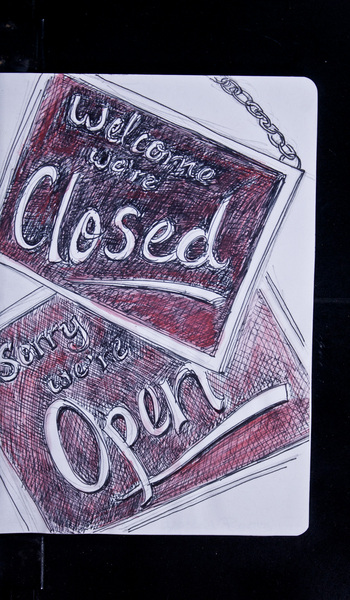 Welcome
we're
Closed
Sorry
we're
Open